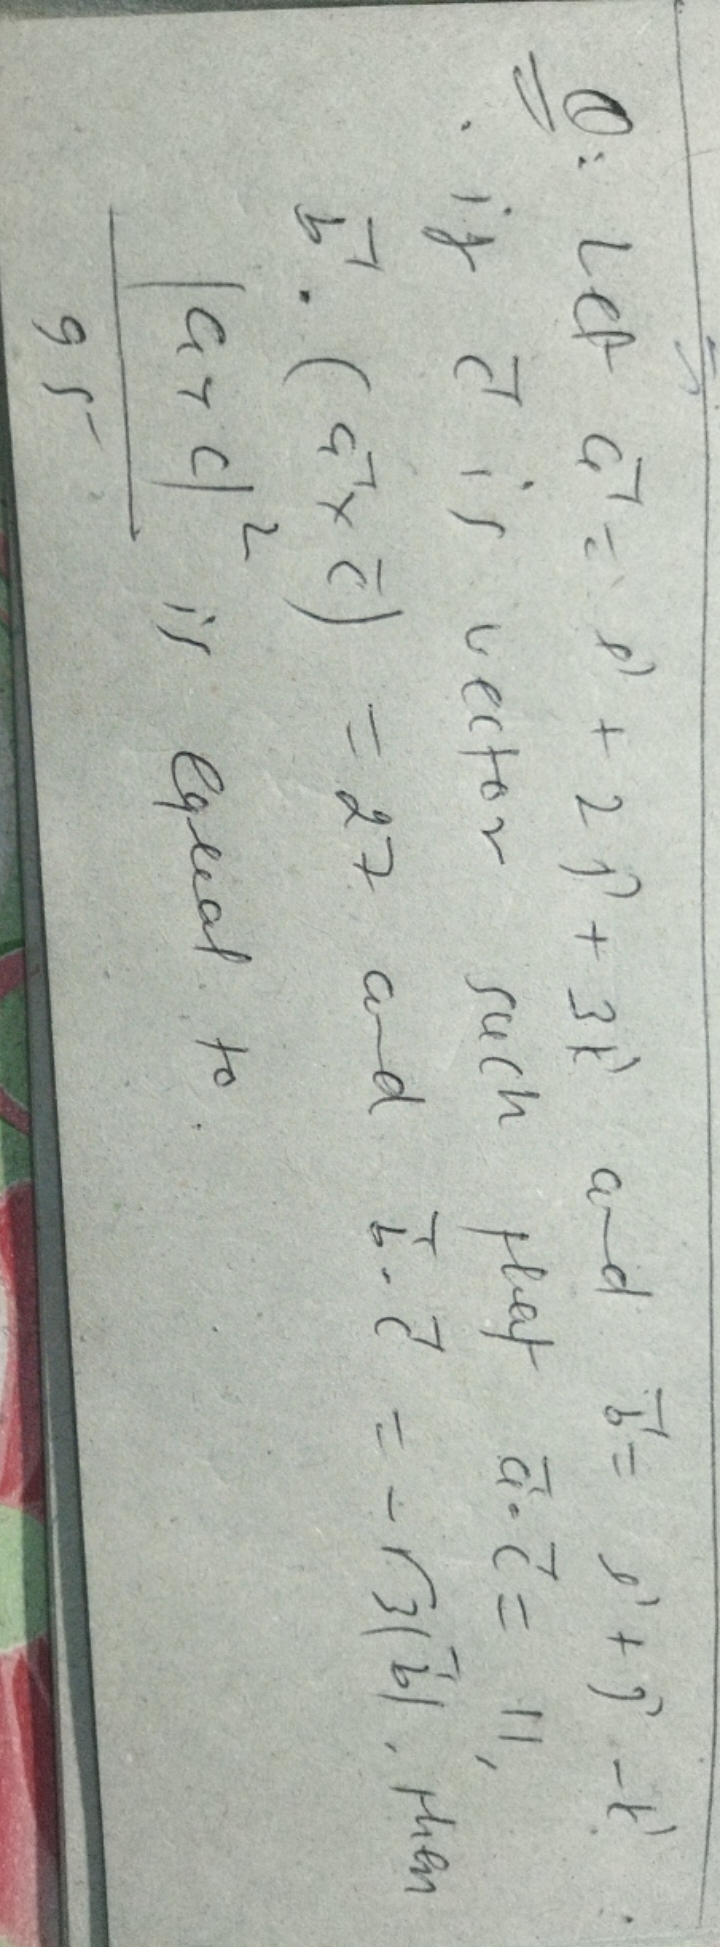 Q: Let a⃗ = î + 2ĵ + 3k̂ and b⃗ = î + ĵ - k̂.
if c⃗ is vector such that a⃗.c⃗ = 11,
b⃗.(a⃗×c⃗) = 27 and b⃗.c⃗ = -√3|b⃗|, then
|a×c|² is equal to.
95